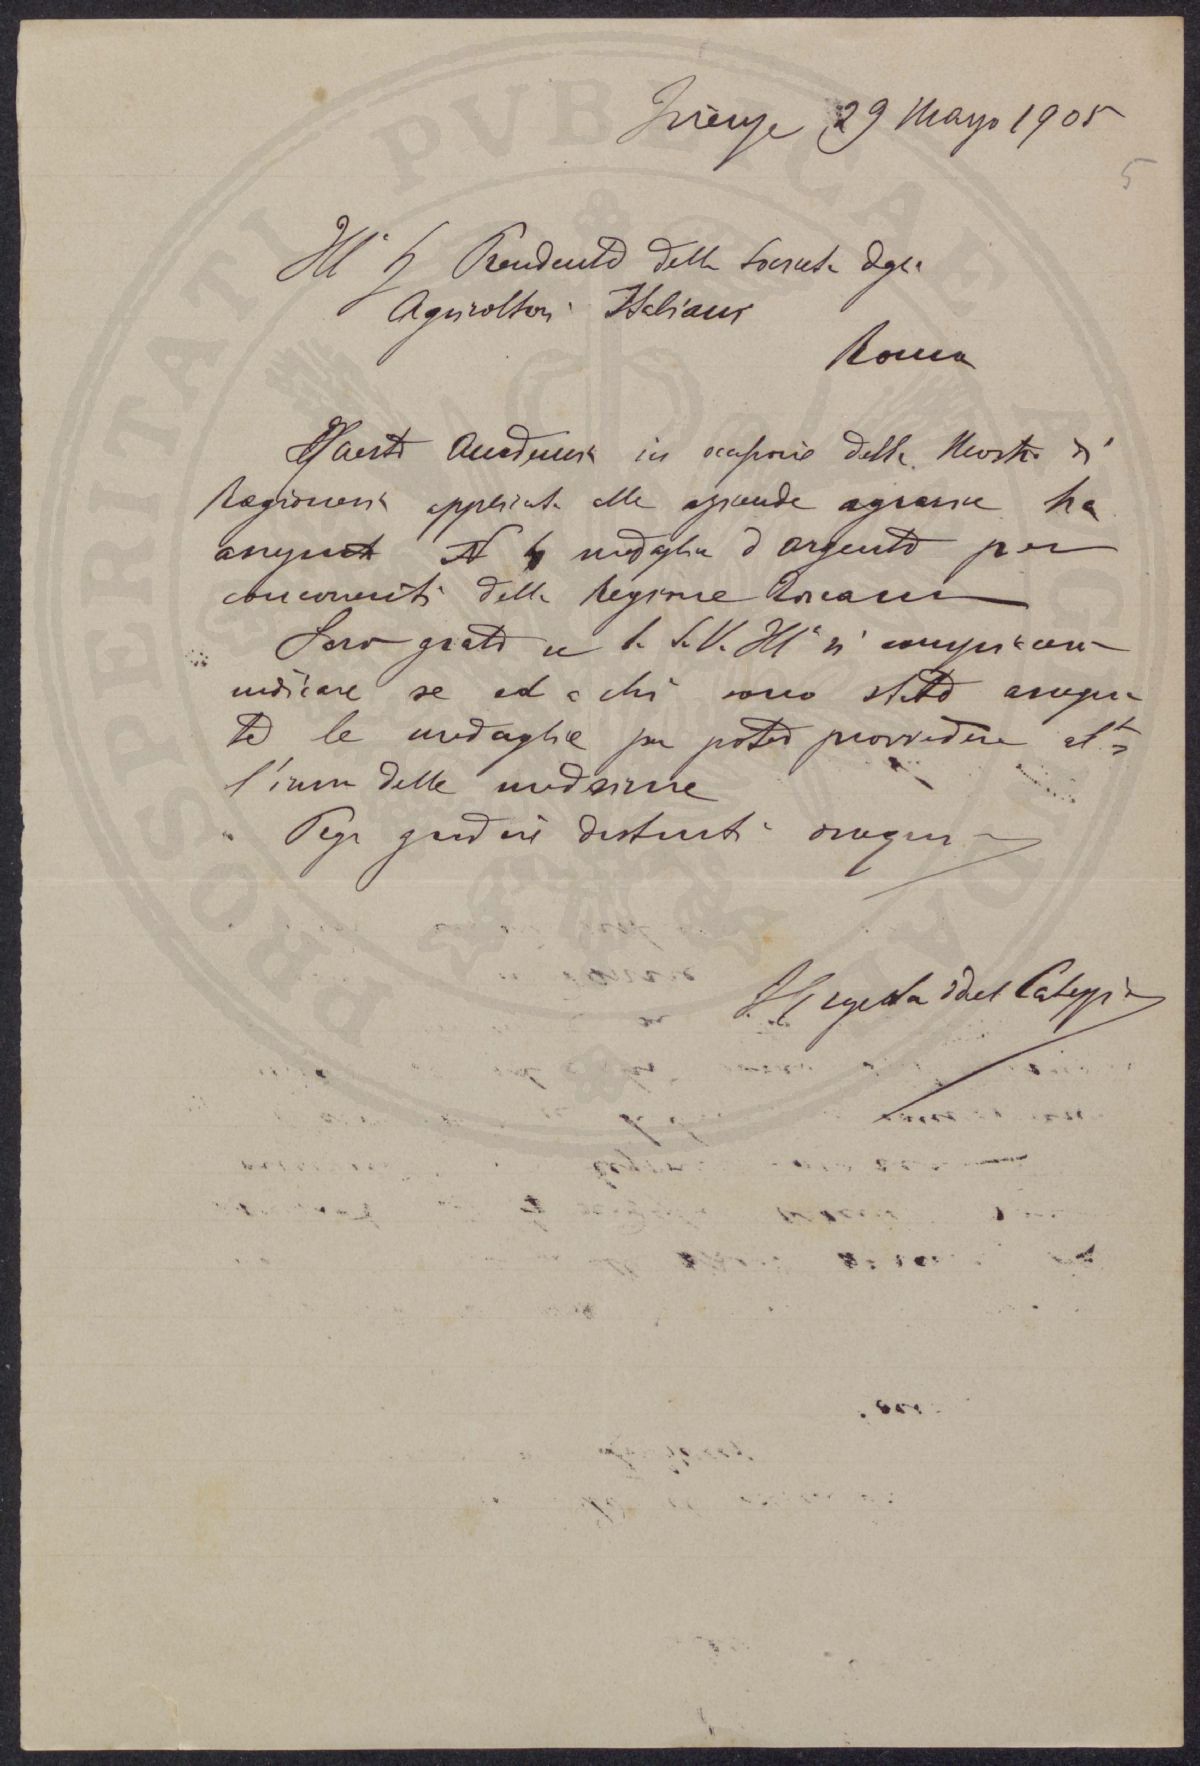 Firenze 29 Marzo 1905
5
Ill° Sg Presidente della Società degli
Agricoltori Italiani
Roma
Questa Accademia in occasione della Mostra di
Ragioneria applicata alle aziende agrarie ha
assegnato N 4 medaglie d'argento per
concorrenti della Regione Toscana
Sarò grato se la S.V. Ill° si compiacerà
indicare se ed a chi sono state assegna
te le medaglie per poter provvedere al
l'invio delle medesime
Pega gradire distinti ossequi
Il Segretario
PROSPERITATI PVBLICAE AVGENDAE